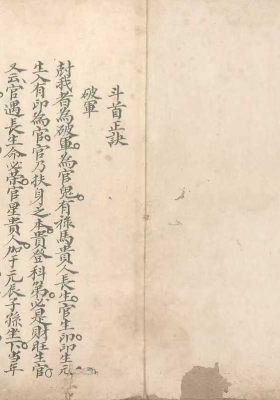 斗首正訣
破軍
尅我者為破軍為官鬼有祿馬貴人長生官生印印生元
生入有印為官官乃扶身之本貴登科第必是財旺生官
又云官遇長生命必榮官星貴人加于元辰子孫坐下當年